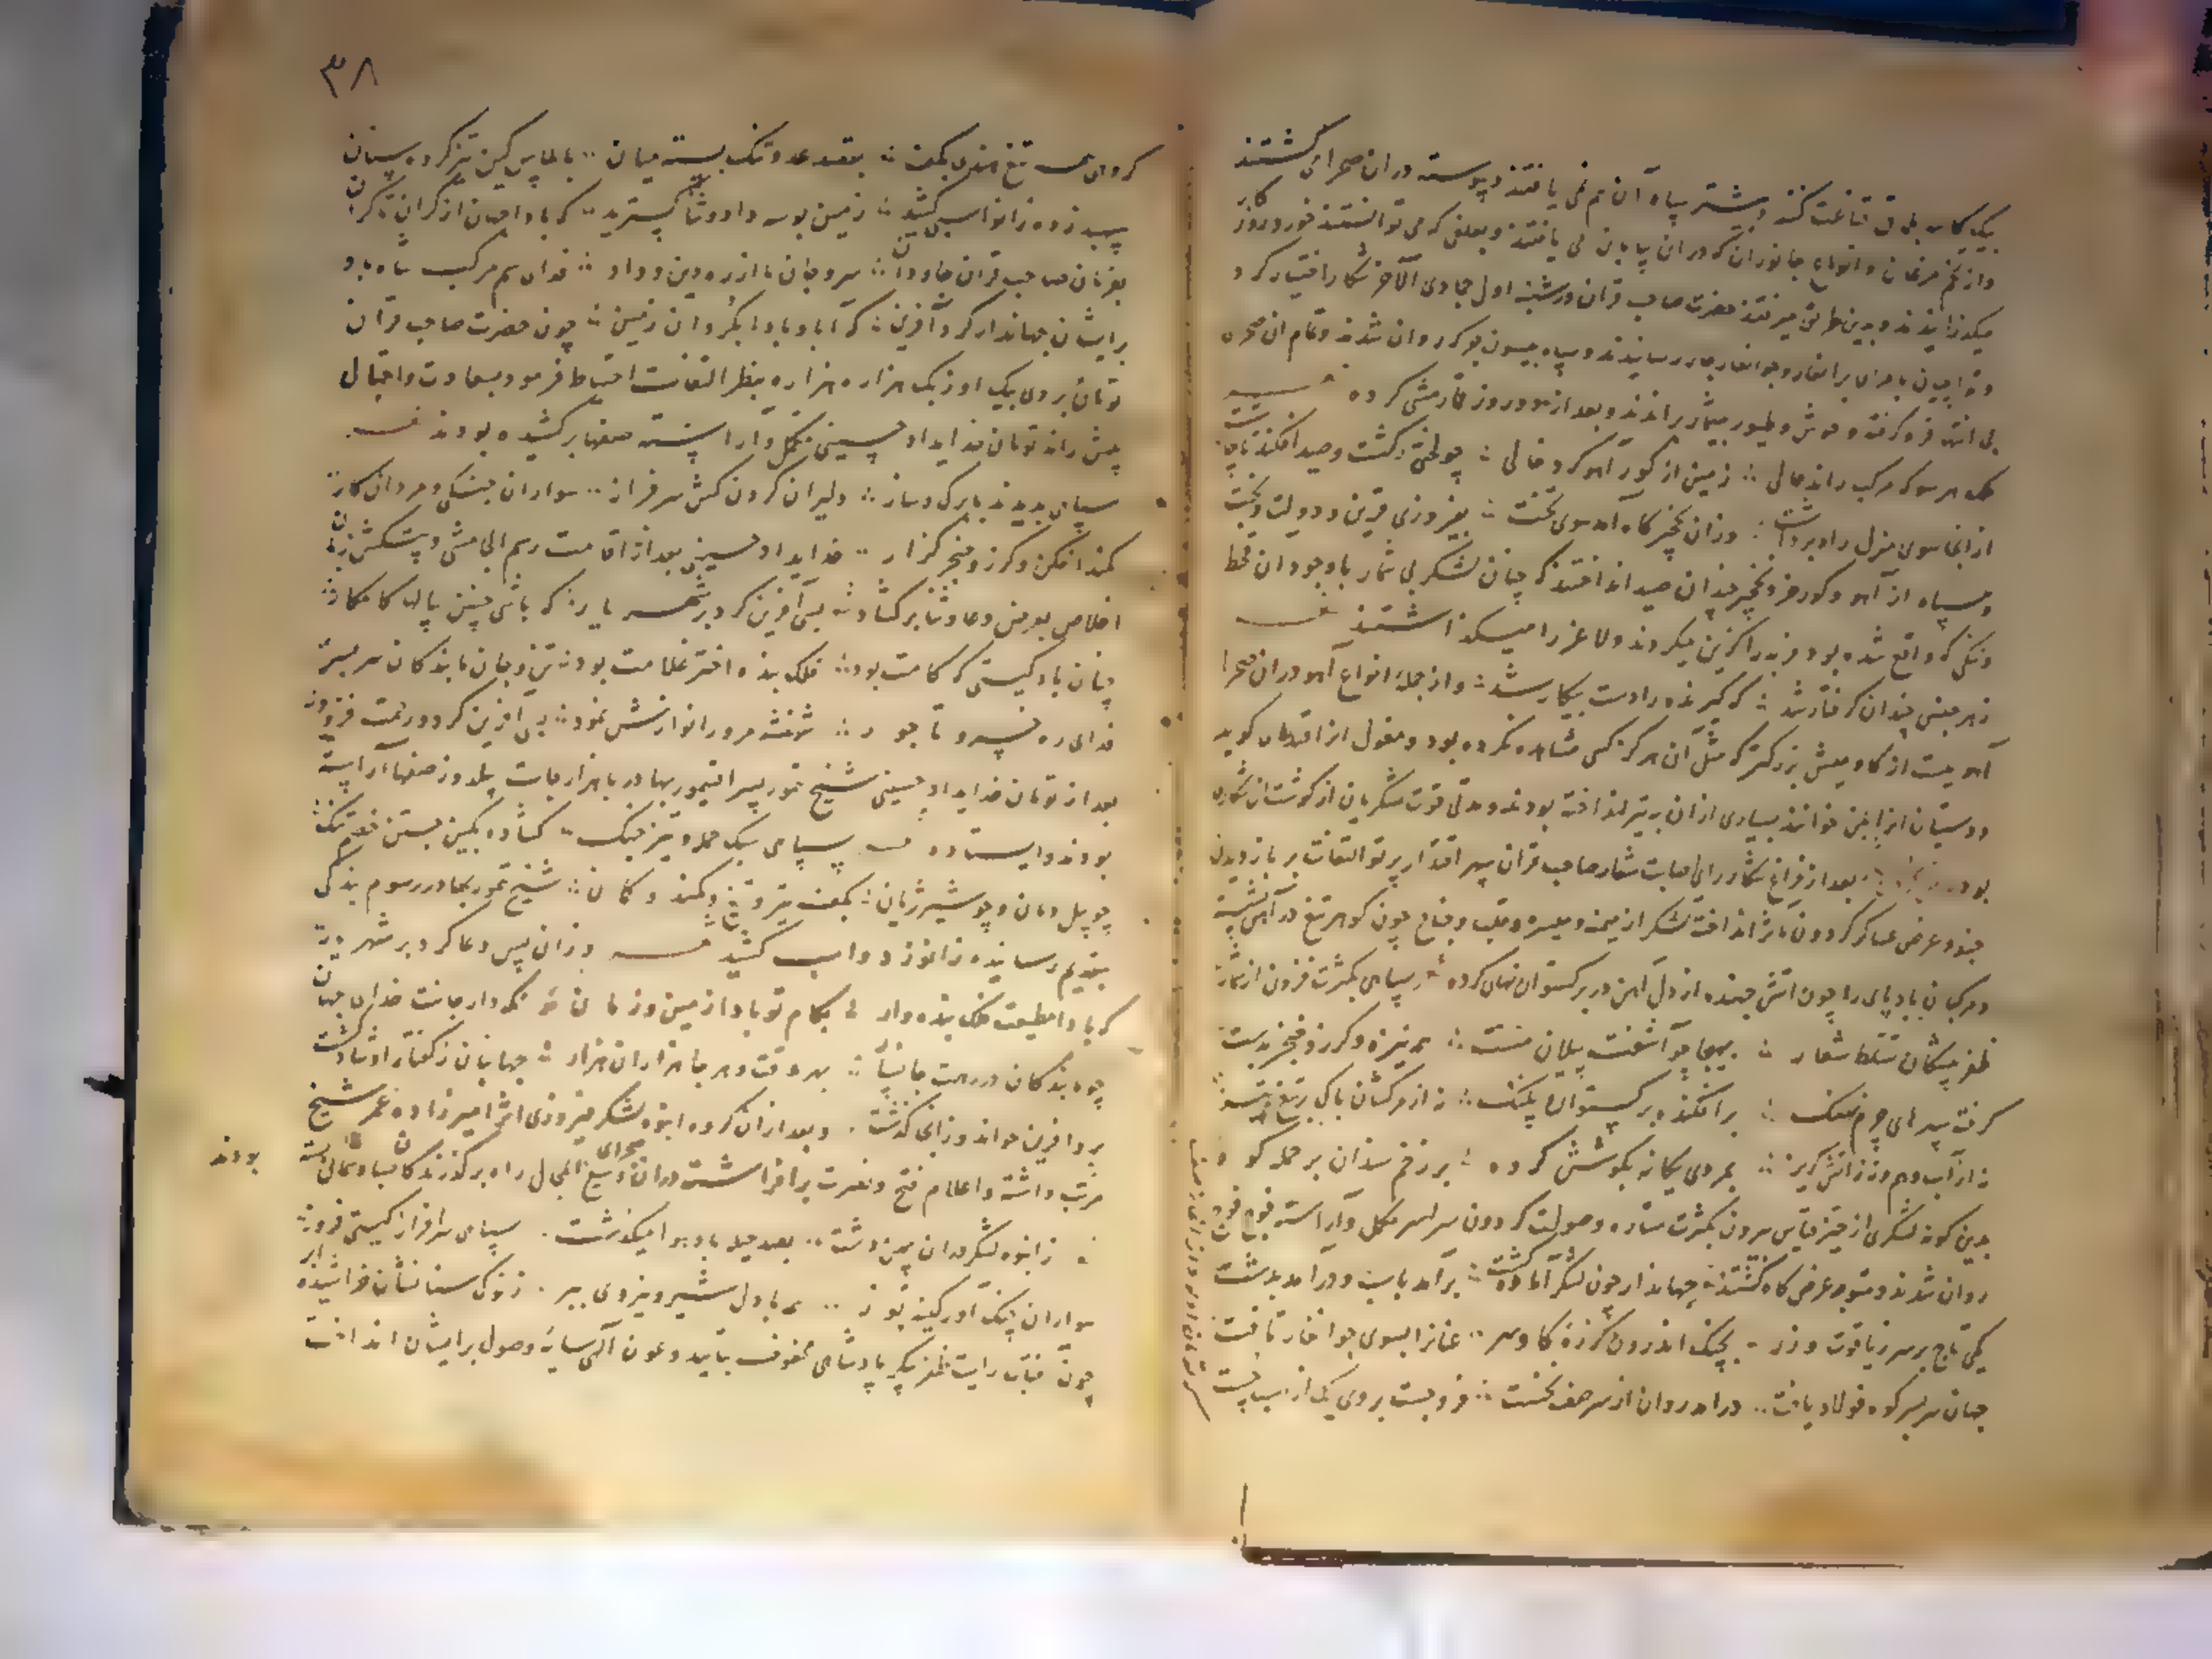 بیک کاسه بلماق قناعت کنند و بیشتر سپاه آن هم نمی یافتند و پیوسته دران صحرا می گشتند
و از تخم مرغان و انواع جانوران که دران بیابان می یافتند و بعلفی که می توانستند خورد روزگار
میگذرانیدند و بدین طریق میرفتند حضرت صاحب قران در شنبه اول جمادی الآخر شکار اختیار کرد
و تواچیان بامرای برانغار و جوانغار جار رسانیدند و سپاه بیسون بوکر روان شدند و تمام ان صحرا
بی انتها فرو گرفته وحوش و طیور بیشمار براندند و بعد از دو روز قمارمشی کرده
ملک هر سو که مرکب راند حالی زمین از گور آهو کرد خالی چو لختی گشت و صید افکند
از انجا سوی منزل راه برداشت وزان نخچیرگاه آمد سوی تخت بفیروزی قرین و دولت و بخت
و سپاه از آهو و گور خر و نخچیر چندان صید انداختند که چنان لشکر بی شمار با وجود ان قحط
و تنگی که واقع شده بود فربه را گزین میکردند و لاغر را میگذاشتند
ز هر جنس چندان گرفتار شد که گیرنده را دست بیکار شد و از جمله انواع آهو دران صحرا
آهوییست از گاومیش بزرگتر که مثل آن هرگز کسی مشاهده نکرده بود و مغول انرا قندغای گوید
و دشتیان انرا بلن خوانند بسیاری ازان به تیر انداخته بودند و مدتی قوت لشکریان از گوشت ان شکاری
بود بعد از فراغ شکار رای صایب شعار صاحب قران سپهر اقتدار پرتو التفات بر باز دیدن
جنود و عرض عساکر گردون مآثر انداخت لشکر از میمنه و میسره و قلب و جناح چون گوهر تیغ در آهن نشسته
و مرکبان بادپای را چون اتش جهنده از دل آهن در برگستوان نهان کرده سپاهی بکثرت فزون از شمار
ظفر پیشگان تسلط شعار بهیجا چو آشفته پیلان مست همه نیزه و گرز و خنجر بدست
گرفته سپرهای چرم نهنگ برافکنده برگستوان پلنگ نه از سرکشان باک
نه از آب و هم و نه ز اتش گریز بمردی یگانه بکوشش گروه بر زخم سندان بر حمله کوه
بدین گونه لشکری از حیز قیاس بیرون بکثرت ستاره و صولت گردون سراسر مکمل و آراسته فوج فوج
روان شدند و متوجه عرض گاه گشتند جهاندار چون لشکر آماده گشت برآمد باسب و درآمد بدشت
یکی تاج بر سر ز یاقوت و زر بچنگ اندرون گرزه گاوسر عنانرا بسوی جوانغار تافت
جهان سر بسر کوه فولاد یافت درامد روان از سر صف نخست فرو جست بردی بک از اسب چست
۳۸
گروهی همه تیغ هندی بکف بقصد عدو تنگ بسته میان بالماس کین تیز کرده سنان
سپهبد زده زانو اسب کشید زمین بوسه داد و ثنا گسترید که بادا جهان از کران تا کران
بفرمان صاحب قران جاودان سر و جان ما از ره دین و داد فدای سم مرکب شاه باد
برایشان جهاندار کرد آفرین که آباد بادا بگردان زمین چون حضرت صاحب قران
تومان بردی بیک اوزبک هزاره هزاره بنظر التفات احتیاط فرمود بسعادت و اقبال
پیش راند تومان خدایداد حسینی مکمل و آراسته صفها برکشیده بودند
سپاهی بدیدند با برگ و ساز دلیران گردن کش سرفراز سواران جنگی و مردان کار
کمند افکن و گرز و خنجر گزار خدایداد حسینی بعد از اقامت رسم الجامشی و پیشکش زبان
اخلاص بعرض دعا و ثنا برگشاد بسی آفرین کرد بر شهریار که باشی چنین سالها کامکار
چنان باد گیتی که کامت بود فلک بنده اختر غلامت بود تن و جان ما بندگان سر بسر
فدای ره خسرو تاجور شهنشه مر او را نوازش نمود بسی افرین کرد و رحمت فزود
بعد از تومان خدایداد حسینی شیخ تمور پسر اقتیمور بهادر با هزارجات سلدوز صفها آراسته
بودند و ایستاده سپاهی سبک حمله و تیز جنگ گشاده کمین بستن خصم تنگ
چو پیل دمان و چو شیر ژیان بکف تیر و تیغ و کمند و کمان شیخ تمور بهادر رسوم بندگی
بتقدیم رسانیده زانو زد و اسب کشید وزان پس دعا کرد بر شهریار
که بادا مطیعت فلک بنده وار بکام تو بادا زمین و زمان نگهدار جانت خدای جهان
چو ما بندگان در رهت جانسپار بهر وقت و هر جا هزاران هزار جهانبان ز گفتار او شاد گشت
برو افرین خواند و زانجا گذشت و بعد ازان گروه انبوه لشکر فیروزی اثر امیرزاده عمر شیخ
مرتب داشته و اعلام فتح و نصرت برافراشته دران صحرای وسیع المجال راه بر گذرنده کان صبا و شمال بسته بودند
ز انبوه لشکر دران پهن دشت بصد حیله باد هوا میگذشت سپاهی سرافراز گیتی فروز
سواران جنگ آور کینه توز همه با دل شیر و نیروی ببر ز نوک سنانشان خراشیده ابر
چون عنان رایت ظفر پیکر پادشاهی محفوف بتایید و عون آلهی سایه وصول برایشان انداخت